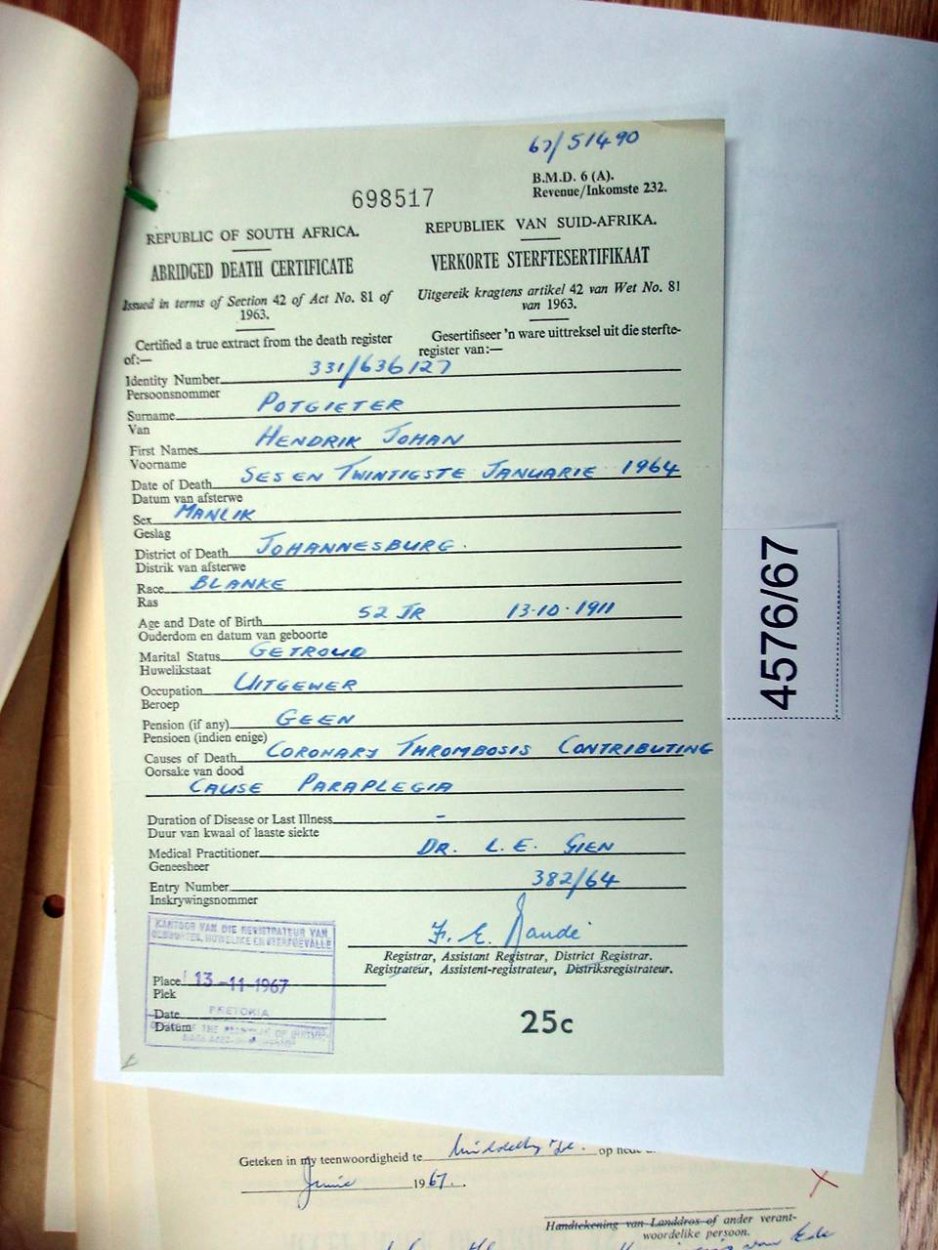 67/51490
B.M.D. 6 (A).
Revenue/Inkomste 232.
698517
REPUBLIC OF SOUTH AFRICA.
ABRIDGED DEATH CERTIFICATE
Issued in terms of Section 42 of Act No. 81 of
1963.
Certified a true extract from the death register
of:—
REPUBLIEK VAN SUID-AFRIKA.
VERKORTE STERFTESERTIFIKAAT
Uitgereik kragtens artikel 42 van Wet No. 81
van 1963.
Gesertifiseer 'n ware uittreksel uit die sterfte-
register van:—
Identity Number 331/636127
Persoonsnommer
Surname POTGIETER
Van
First Names HENDRIK JOHAN
Voorname
Date of Death SES EN TWINTIGSTE JANUARIE 1964
Datum van afsterwe
Sex MANLIK
Geslag
District of Death JOHANNESBURG.
Distrik van afsterwe
Race BLANKE
Ras
Age and Date of Birth 52 JR 13-10-1911
Ouderdom en datum van geboorte
Marital Status GETROUD
Huwelikstaat
Occupation UITGEWER
Beroep
Pension (if any) GEEN
Pensioen (indien enige)
Causes of Death CORONARY THROMBOSIS CONTRIBUTING
Oorsake van dood
CAUSE PARAPLEGIA
Duration of Disease or Last Illness -
Duur van kwaal of laaste siekte
Medical Practitioner DR. L. E. GIEN
Geneesheer
Entry Number 382/64
Inskrywingsnommer
F. E. Naude
Registrar, Assistant Registrar, District Registrar.
Registrateur, Assistent-registrateur, Distriksregistrateur.
KANTOOR VAN DIE REGISTRATEUR VAN
GEBOORTES, HUWELIKE EN STERFGEVALLE
Place 13-11-1967
Plek
PRETORIA
Date
Datum
25c
4576/67
Geteken in my teenwoordigheid te op
Junie 1967.
Handtekening van Landdros of ander verant-
woordelike persoon.